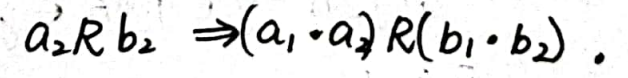 a₂Rb₂ ⇒(a₁·a₂)R(b₁·b₂).